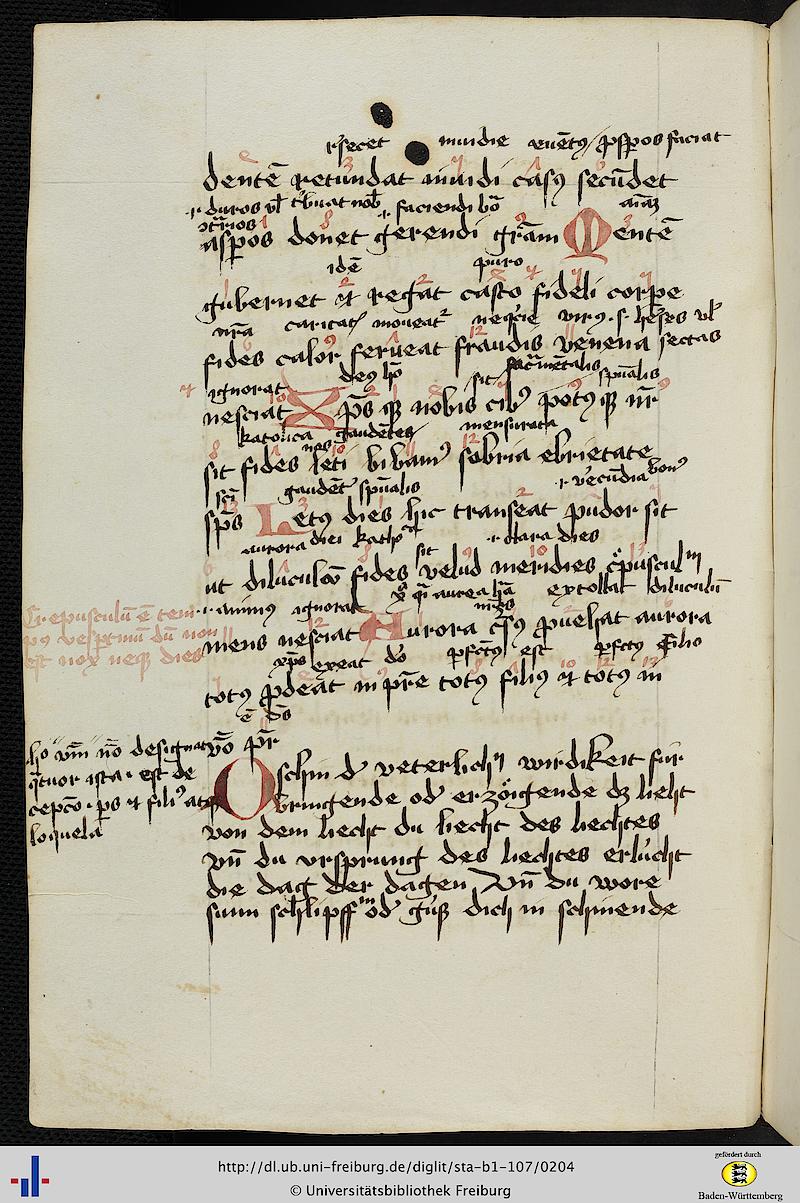 secet mundie euētꝰ prosperos faciat
dentē retundat mu̅di casꝰ secūdet
duros vl̕ tͥbuat nob̕ faciendi bō
aspōs donet gerendi grām Mentē
idē puro
gubernet et regat casto fideli corpe
vr̄a caritatꝭ moueatᷣ neqͥcie virꝰ s. hēses vl̕
fides calor̕ ferueat fraudis venena sectas
ignorat deꝰ sit sacͣmētalis spūalis
nesciat Xp̄s qꝫ nobis cibꝰ potꝰ qꝫ nr̄
katolica gaudētes mensurata
sit fides leti bibamꝰ sobria ebrietate
sci gaudētᷣ spūalis verecūdia bonꝰ
sp̄s Letꝰ dies hic transeat pudor sit
aurora diei sit clara dies
ut diluculo fides velud meridies cͤpusculū
animus ignorat extollat diluculū
mens nesciat Aurora cursꝰ puehat aurora
xp̄s exeat do pfectꝰ est pfctꝰ filio
totꝰ pdeat in pr̄e totꝰ filiꝰ et totꝰ in
ē dn̄s
vō pr̄
Crepusculū ē tem-
pꝰ vespertinū dū non
est nox neqꝫ dies
hō vm̄ nō designat
qͣtuor ista est de
cepcō ps et filiꝰ atqꝫ
loquela
O schin dͤ veterlichn̄ wirdikeit für
bringende odͤ erzöigende dz lieht
von dem liecht du liecht des liechtes
vn̄ du vrsprung des liechtes erlücht
die dag der dagen Vn̄ du wore
sunn schlipff in odͤ güß dich in schinende
http://dl.ub.uni-freiburg.de/diglit/sta-b1-107/0204
© Universitätsbibliothek Freiburg
gefördert durch
Baden-Württemberg